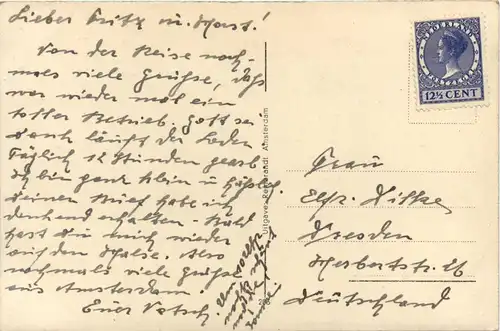 Lieber Fritz u. Horst!
Von der Reise noch-
mals viele Grüsse, Das
war wieder mal ein
toller Betrieb. Gott sei
dank läuft der Laden
Täglich 12 Stunden gearb.
Ich bin ganz klein u. hässlich
Deinen Brief habe ich
dankend erhalten. Bald
hast Du mich wieder
auf dem Halse. Also
nochmals viele Grüsse
aus Amsterdam.
Euer
Uitgave Rembrandt Amsterdam
NEDERLAND
12½ CENT
Frau
Elfr.
Dresden
Herbertstr.
Deutschland